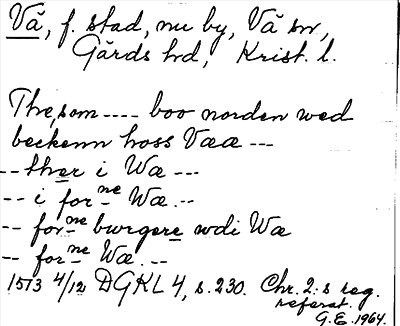 Vä, f. stad, nu by, Vä sn,
Gärds hd, Krist. l.
The, som ---- boo norden wed
beckenn hoss Vææ ---
-- ther i Wæ ---
-- i forne Wæ --
-- forne burgere udi Wæ
-- forne Wæ. --
1513 4/12 DGKL 4, s. 230. Chr. 2:s reg.
referat.
G.E. 1964.